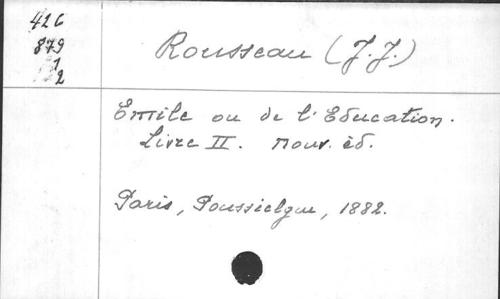 426
879
1
2
Rousseau (J.J.)
Emile ou de l'Education.
Livre II. nouv. éd.
Paris, Poussielgue, 1882.